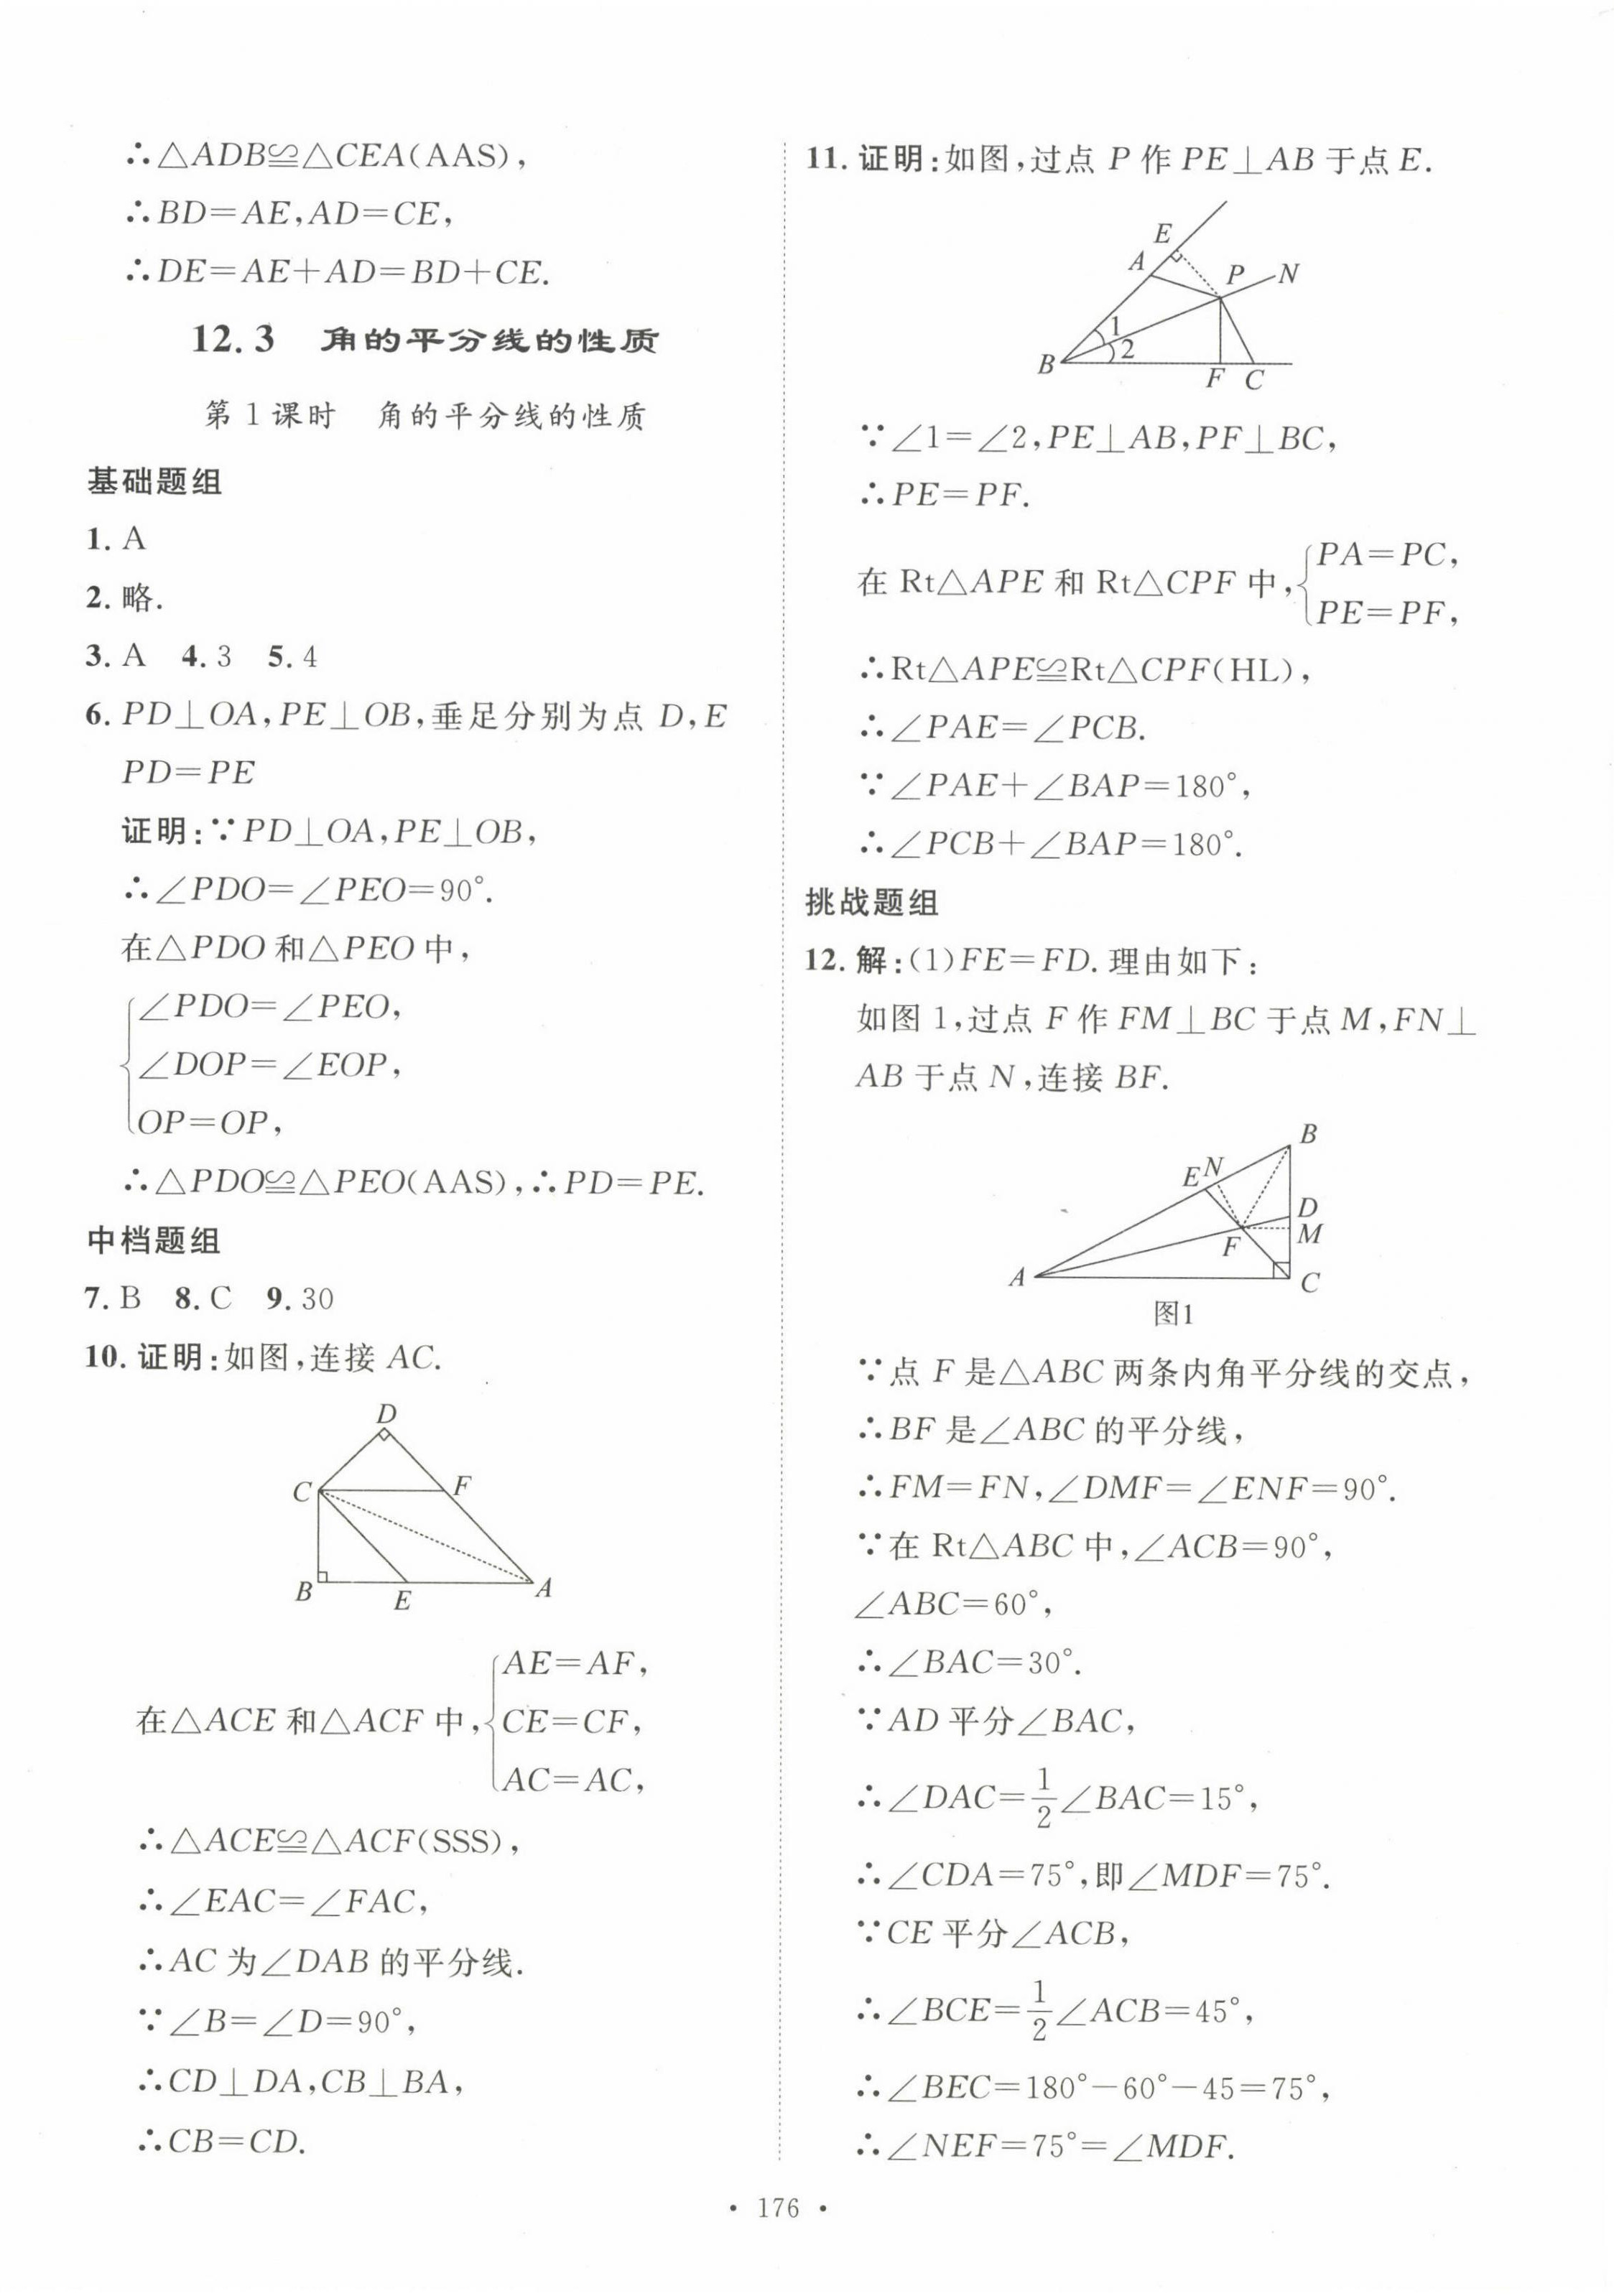 ∴△ADB≌△CEA(AAS),
∴BD=AE,AD=CE,
∴DE=AE+AD=BD+CE.
12.3 角的平分线的性质
第1课时 角的平分线的性质
基础题组
1. A
2. 略.
3. A 4. 3 5. 4
6. PD⊥OA,PE⊥OB,垂足分别为点 D,E
PD=PE
证明:∵PD⊥OA,PE⊥OB,
∴∠PDO=∠PEO=90°.
在△PDO和△PEO中,
∠PDO=∠PEO,
∠DOP=∠EOP,
OP=OP,
∴△PDO≌△PEO(AAS),∴PD=PE.
中档题组
7. B 8. C 9. 30
10. 证明:如图,连接 AC.
D
C
F
B
E
A
AE=AF,
在△ACE和△ACF中,{CE=CF,
AC=AC,
∴△ACE≌△ACF(SSS),
∴∠EAC=∠FAC,
∴AC为∠DAB的平分线.
∵∠B=∠D=90°,
∴CD⊥DA,CB⊥BA,
∴CB=CD.
11. 证明:如图,过点 P 作 PE⊥AB 于点 E.
E
A
P
N
1
2
B
F C
∵∠1=∠2,PE⊥AB,PF⊥BC,
∴PE=PF.
PA=PC,
在 Rt△APE 和 Rt△CPF 中,{
PE=PF,
∴Rt△APE≌Rt△CPF(HL),
∴∠PAE=∠PCB.
∵∠PAE+∠BAP=180°,
∴∠PCB+∠BAP=180°.
挑战题组
12. 解:(1)FE=FD. 理由如下:
如图 1,过点 F 作 FM⊥BC 于点 M,FN⊥
AB 于点 N,连接 BF.
B
E N
D
M
F
A
C
图1
∵点 F 是△ABC 两条内角平分线的交点,
∴BF 是∠ABC 的平分线,
∴FM=FN,∠DMF=∠ENF=90°.
∵在 Rt△ABC 中,∠ACB=90°,
∠ABC=60°,
∴∠BAC=30°.
∵AD 平分∠BAC,
∴∠DAC=1/2∠BAC=15°,
∴∠CDA=75°,即∠MDF=75°.
∵CE 平分∠ACB,
∴∠BCE=1/2∠ACB=45°,
∴∠BEC=180°−60°−45=75°,
∴∠NEF=75°=∠MDF.
• 176 •